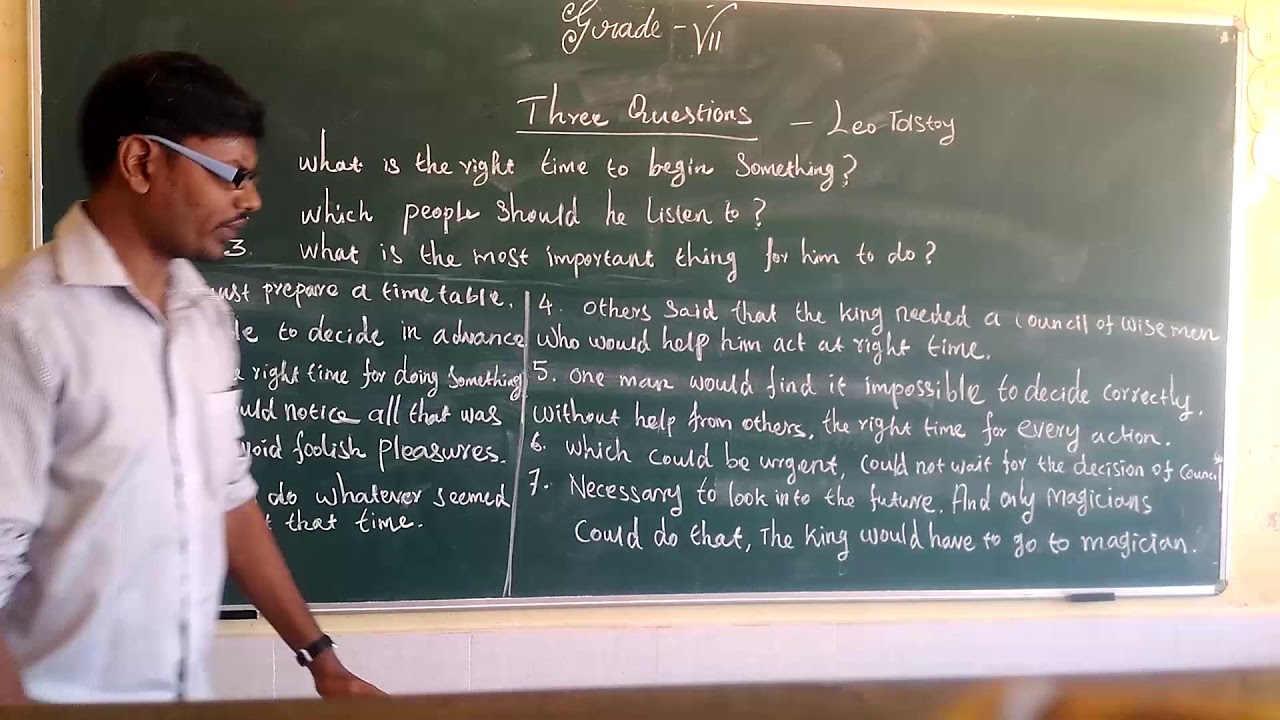 Grade - VII
Three Questions - Leo Tolstoy
What is the right time to begin Something?
which people should he listen to?
3. What is the most important thing for him to do?
prepare a time table.
to decide in advance
right time for doing something
notice all that was
foolish pleasures.
do whatever seemed
that time.
4. Others said that the king needed a council of wise men
who would help him act at right time.
5. One man would find it impossible to decide correctly.
without help from others, the right time for every action.
6. Which could be urgent, could not wait for the decision of council
7. Necessary to look into the future. And only magicians
could do that, The king would have to go to magician.